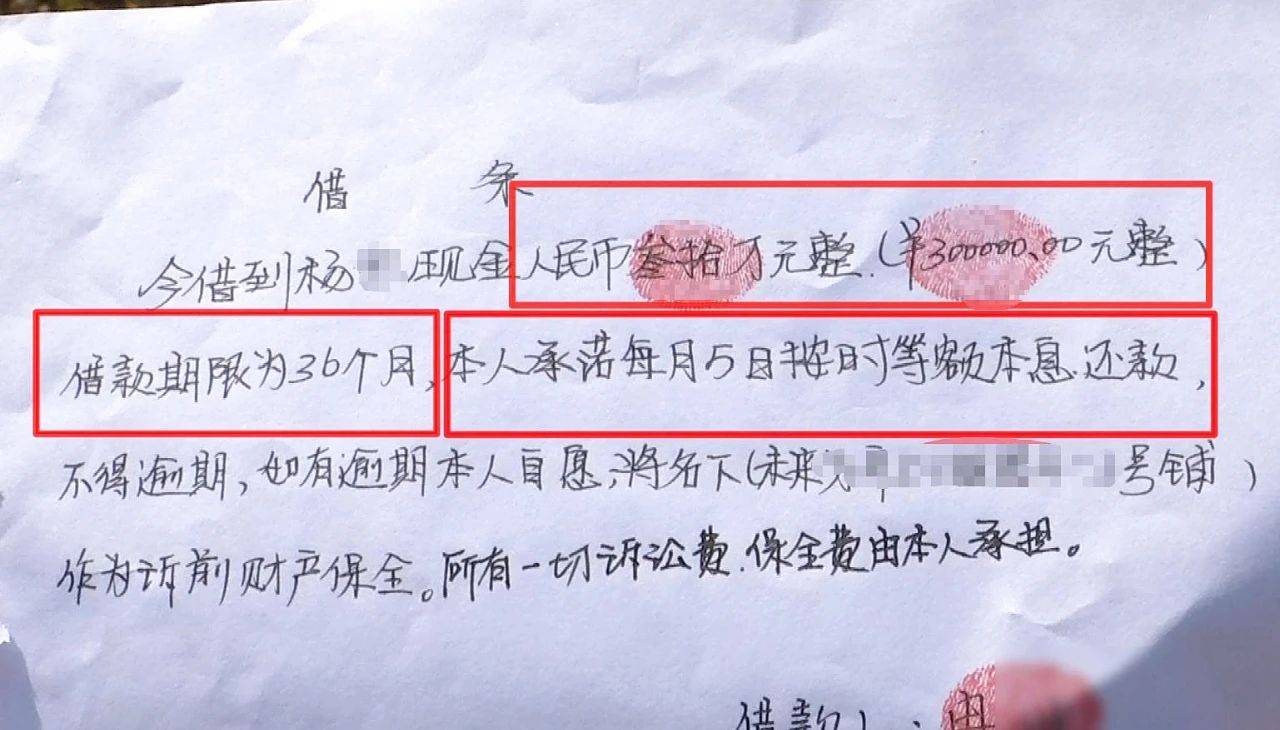 借 条
今借到杨 现金人民币叁拾万元整.(¥300000.00元整)
借款期限为36个月,本人承诺每月5日按时等额本息还款,
不得逾期,如有逾期本人自愿,将名下( 号铺)
作为诉前财产保全。所有一切诉讼费.保全费由本人承担。
借款人: